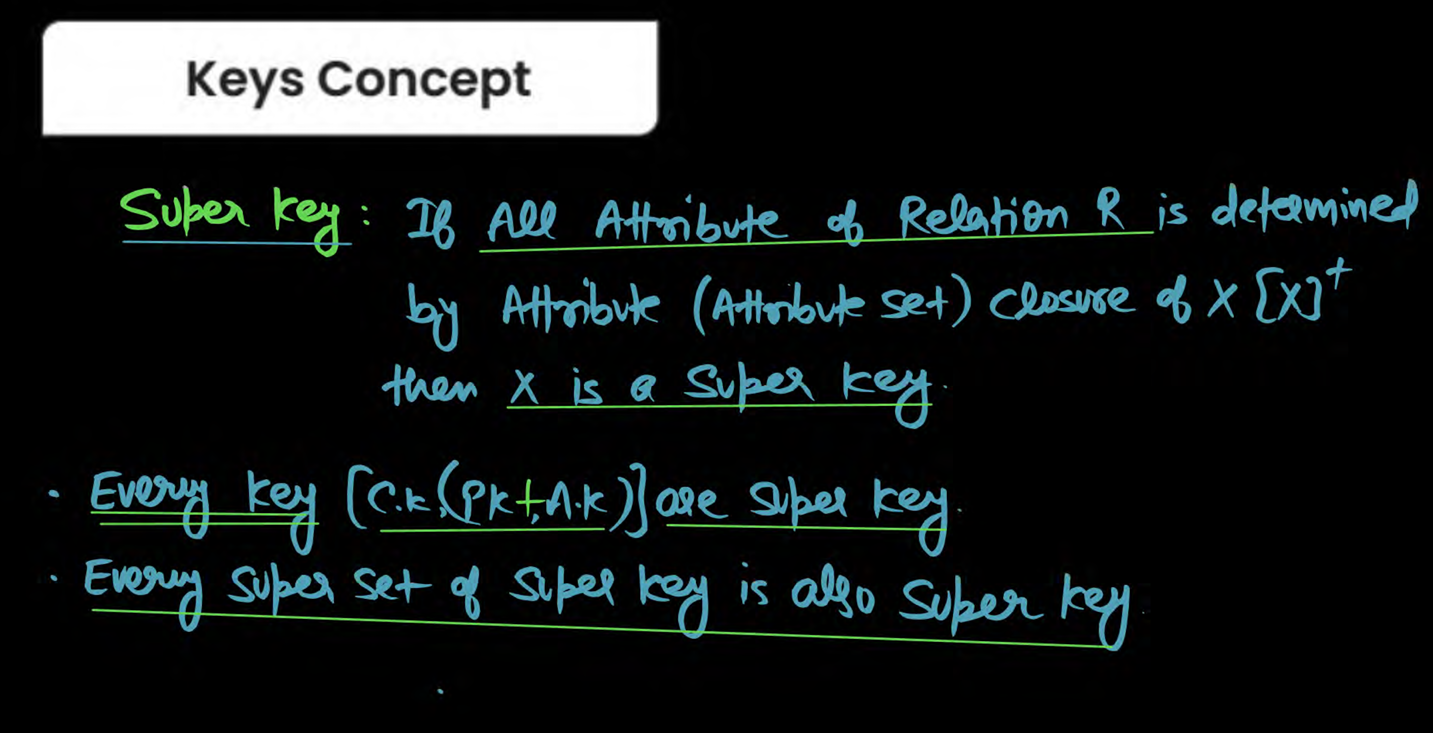 Keys Concept
Super key : If All Attribute of Relation R is determined
by Attribute (Attribute set) closure of X [X]⁺
then X is a Super key.
• Every key [C.k,(Pk+,A.k)] are super key.
• Every super set of super key is also super key.